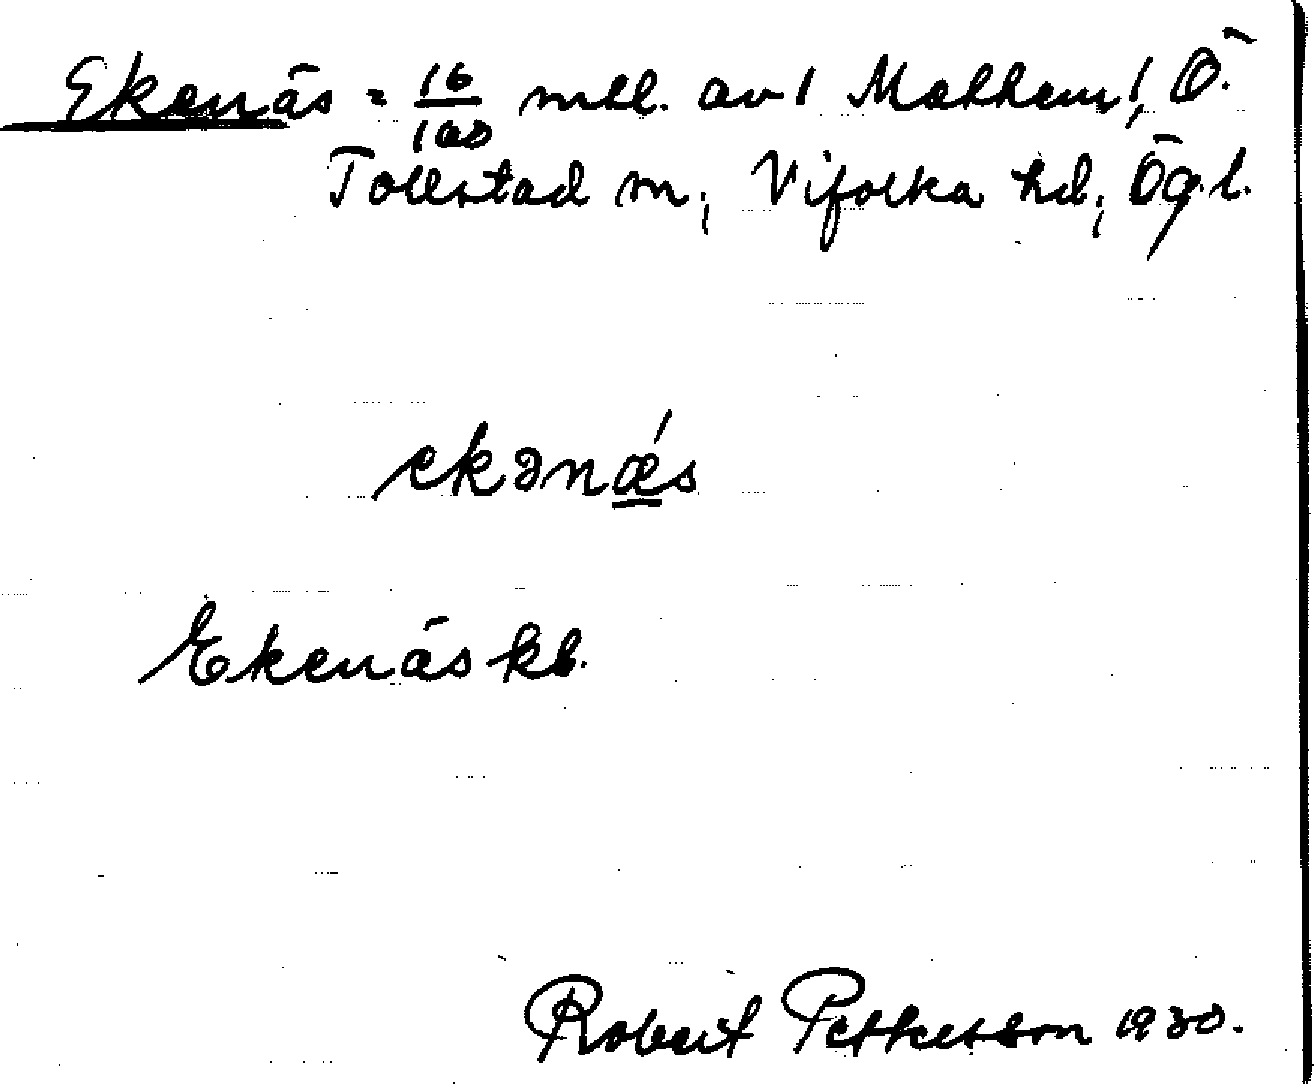 Ekenäs = 16/100 mtl. av 1 Mathem!, Ö.
Tollstad sn, Vifolka hd, Ögl.
ekənǽs
Ekenäs kb.
Robert Pettersson 1930.